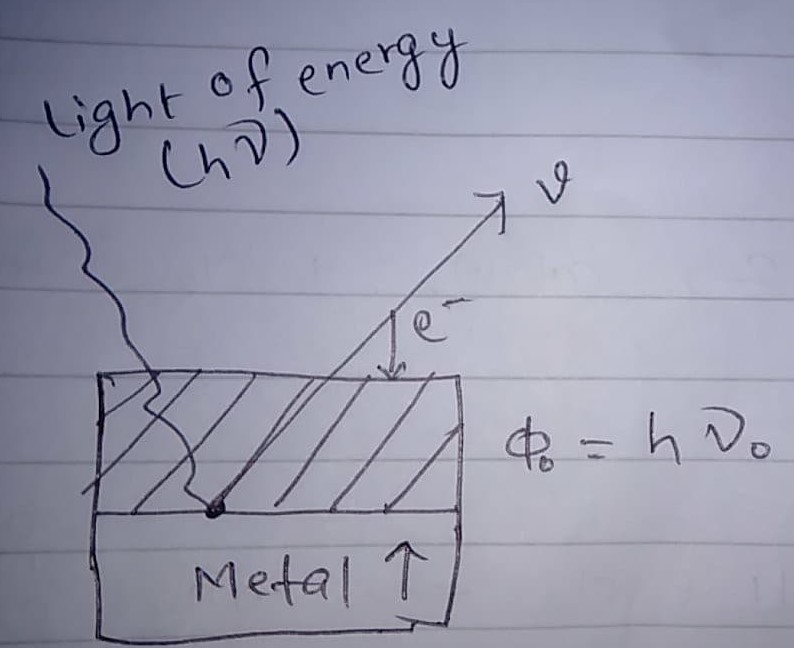 Light of energy
(hν)
v
e⁻
Φ₀ = hν₀
Metal ↑